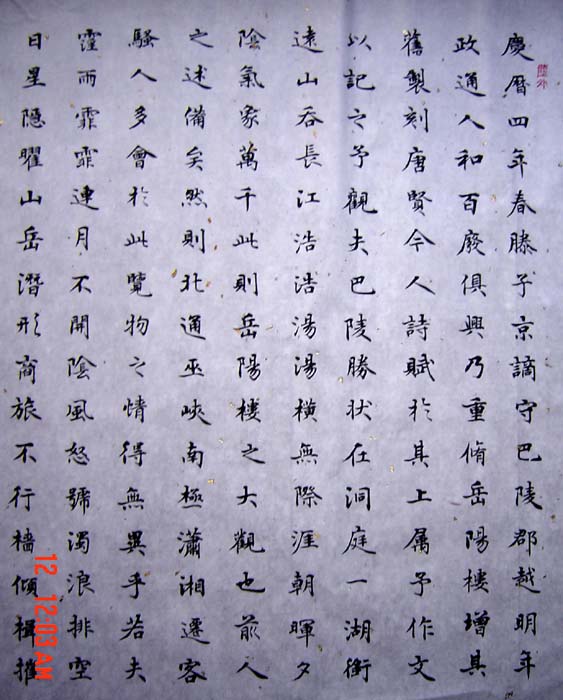 慶曆四年春滕子京謫守巴陵郡越明年
政通人和百廢俱興乃重脩岳陽樓增其
舊製刻唐賢今人詩賦於其上属予作文
以記之予觀夫巴陵勝狀在洞庭一湖銜
遠山吞長江浩浩湯湯橫無際涯朝暉夕
陰氣象萬千此則岳陽樓之大觀也前人
之述備矣然則北通巫峽南極瀟湘遷客
騷人多會於此覽物之情得無異乎若夫
霪雨霏霏連月不開陰風怒號濁浪排空
日星隱曜山岳潛形商旅不行檣傾楫摧
12 12:03AM